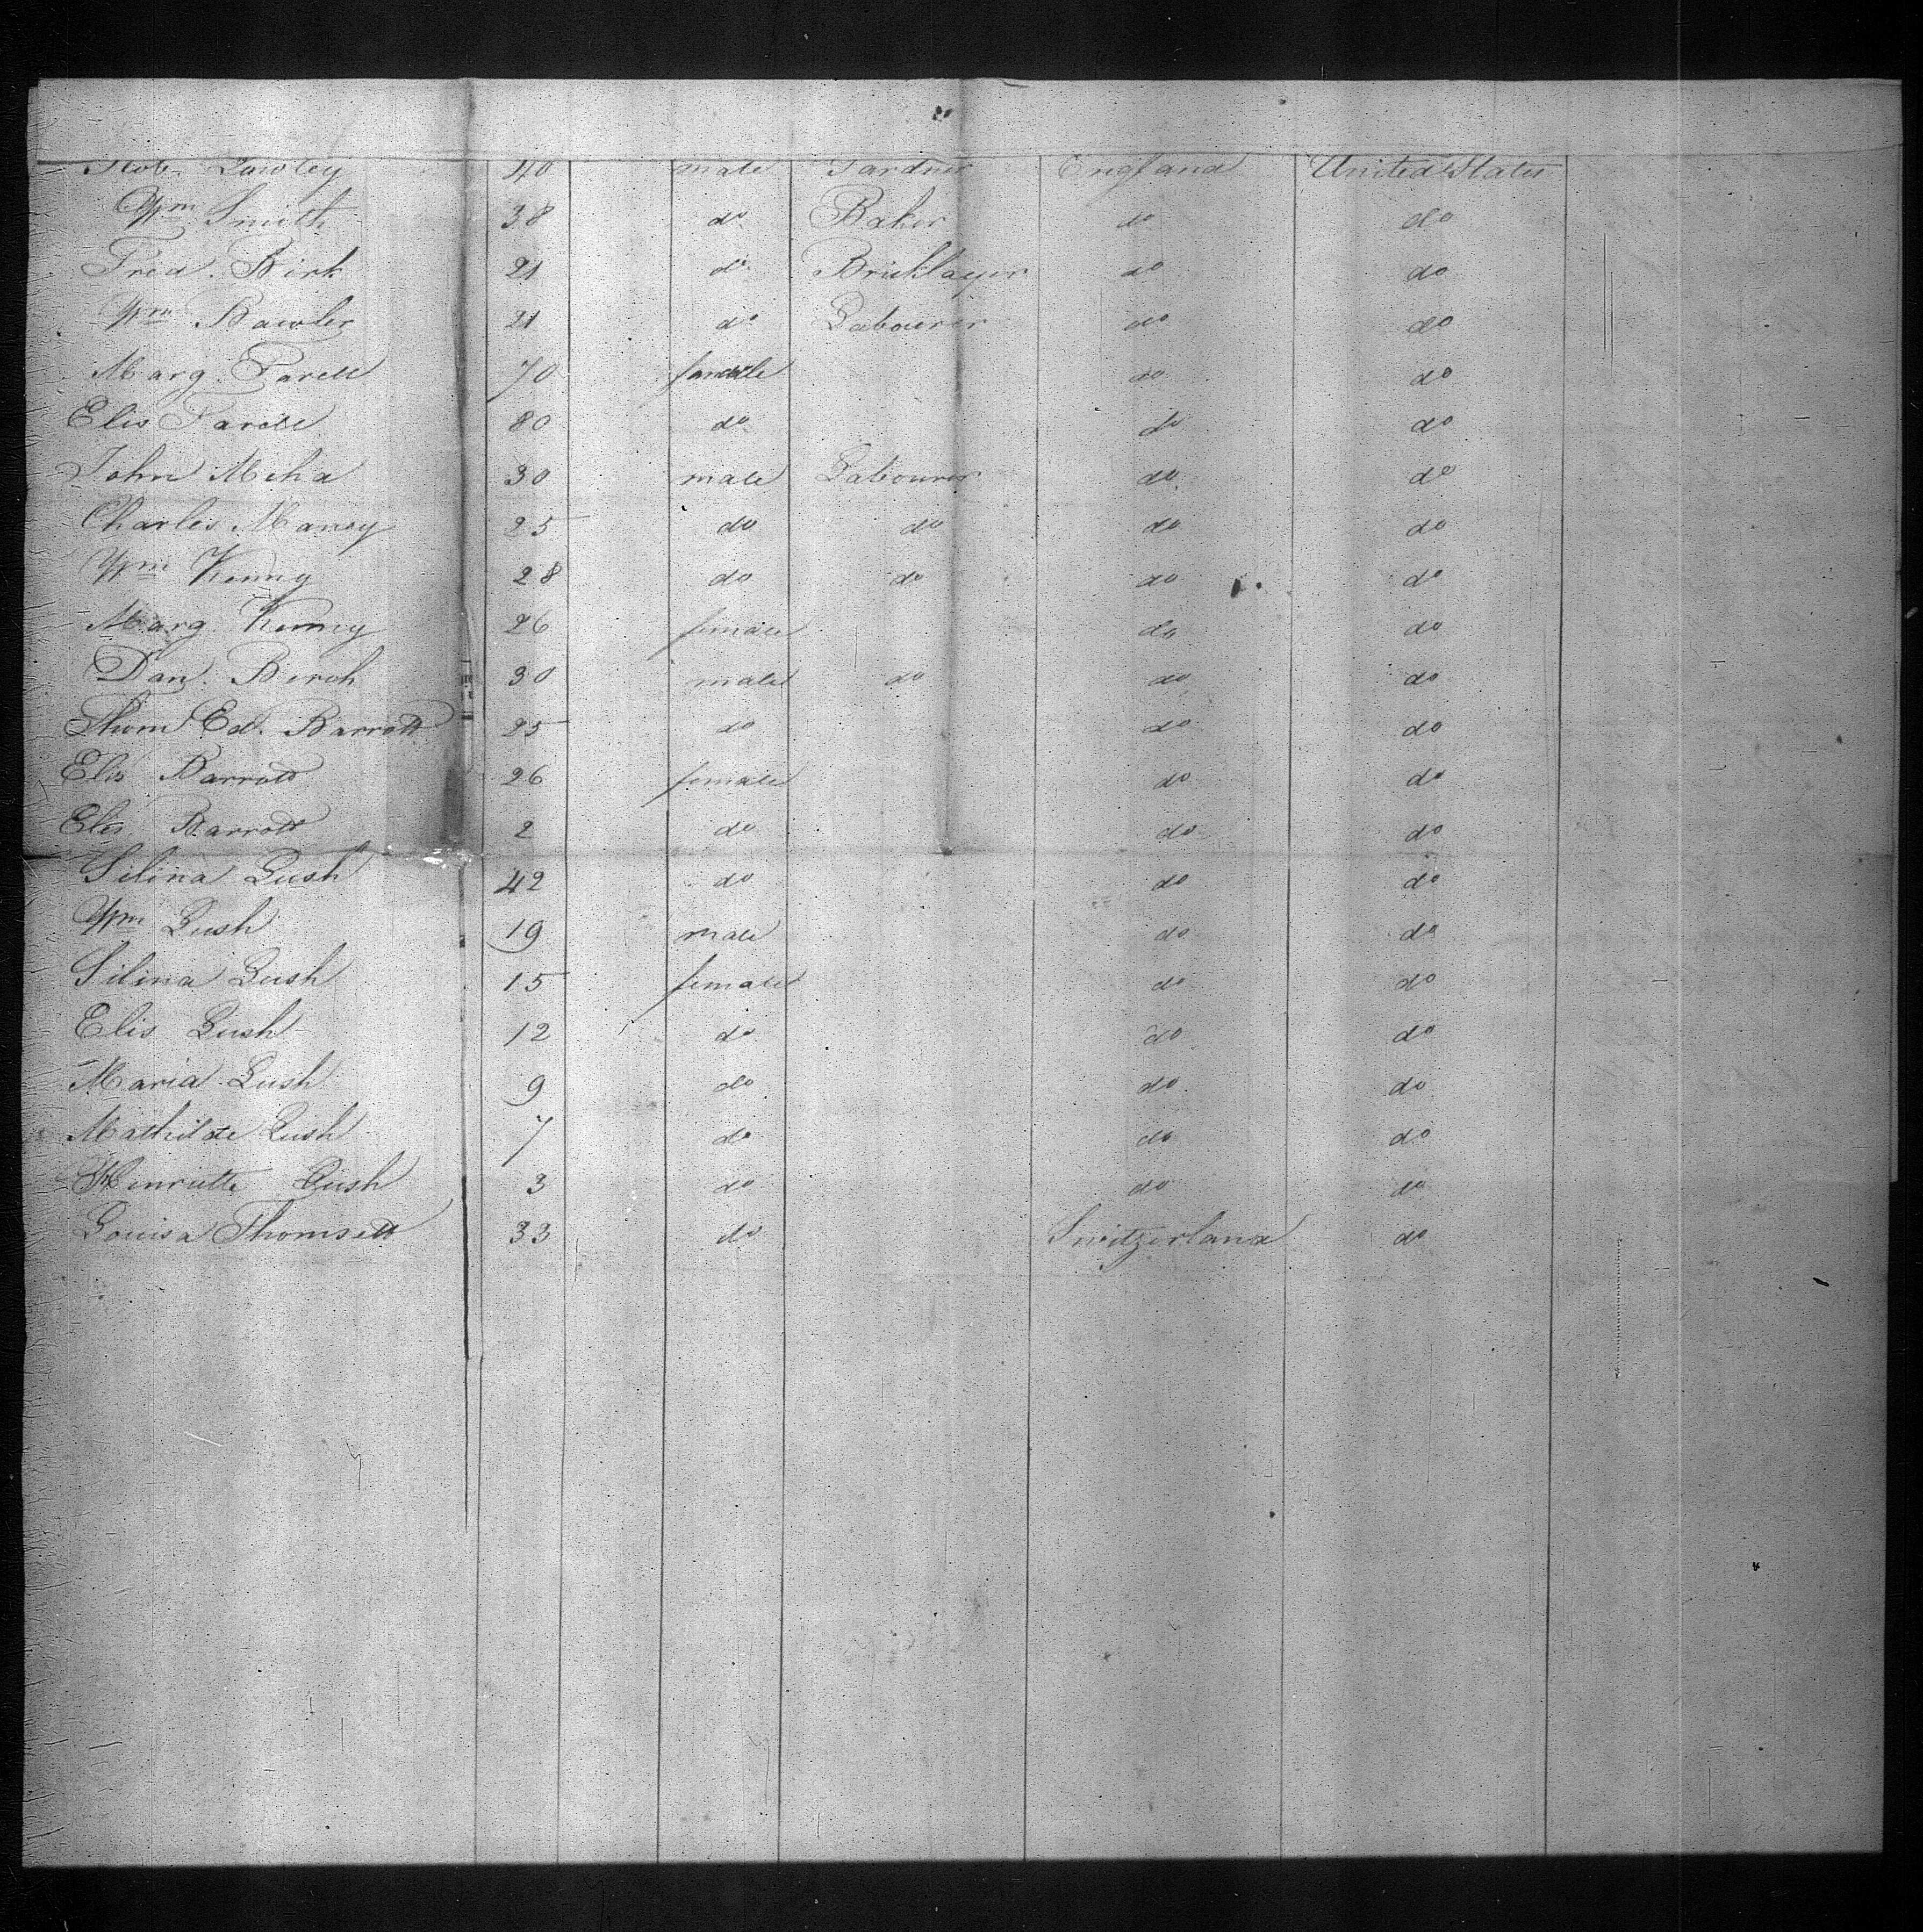 Rob. Lawley 40 male Gardner England United States
Wm Smith 38 do Baker do do
Fred. Birk 21 do Bricklayer do do
Wm Bawler 21 do Labourer do do
Marg. Farell 70 female do do
Elis Farell 80 do do do
John Meha 30 male Labourer do do
Charles Maney 25 do do do do
Wm Kenny 28 do do do do
Marg. Kenny 26 female do do
Dan. Birch 30 male do do do
Thom Ed. Barrott 25 do do do
Elis Barrott 26 female do do
Elis Barrott 2 do do do
Silina Lush 42 do do do
Wm Lush 19 male do do
Silina Lush 15 female do do
Elis Lush 12 do do do
Maria Lush 9 do do do
Mathilde Lush 7 do do do
Henriette Lush 3 do do do
Louisa Thomsett 33 do Switzerland do